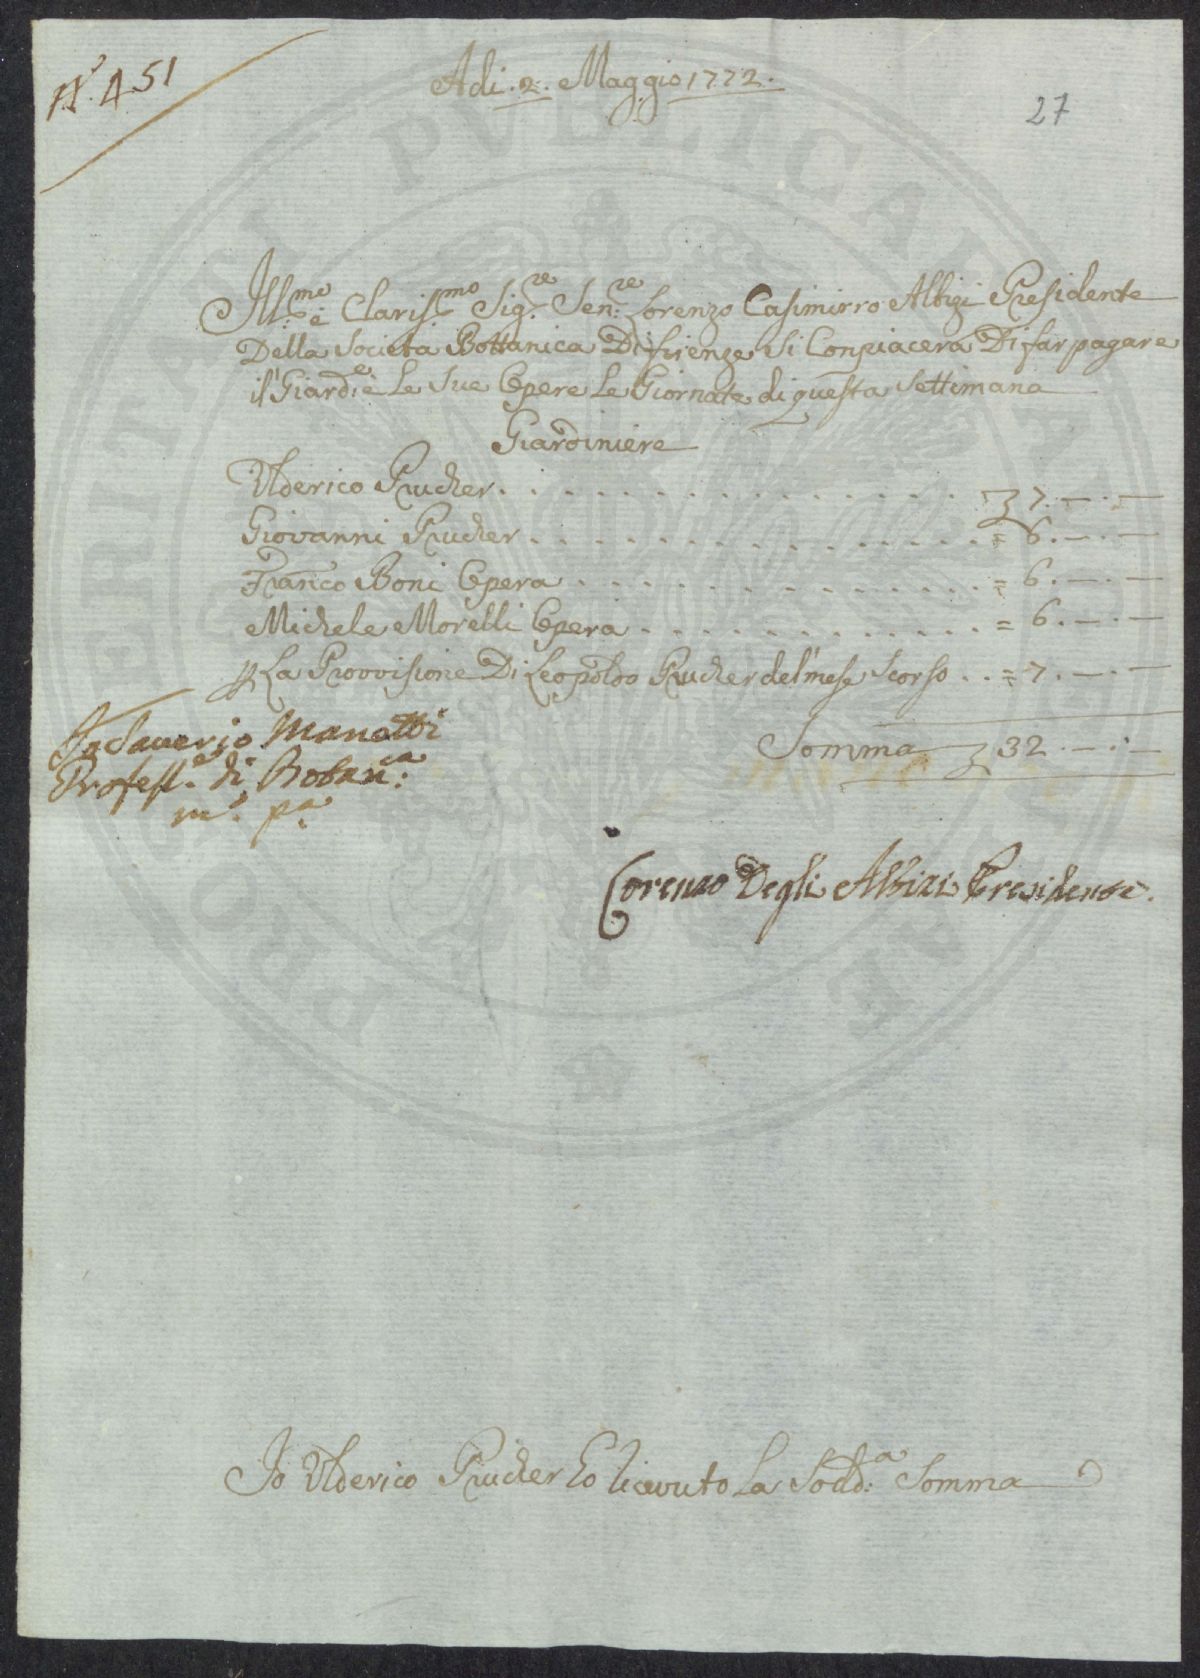 N.° 451
Adi. 2. Maggio 1772.
27
Ill:me e Claris:mo Sig:re Sen:re Lorenzo Casimirro Albizi Presidente
Della Societa Bottanica Di firenze Si Conpiacera Di far pagare
il Giard:e è Le Sue Opere Le Giornate di questa Settimana
Giardiniere
Ulderico Prucher . . . . . . . . . . . . . . 7. — . —
Giovanni Prucher . . . . . . . . . . . . . = 6. — . —
Franco Boni Opera . . . . . . . . . . . . = 6. — . —
Michele Morelli Opera . . . . . . . . . . = 6. — . —
p La Provvisione Di Leopoldo Prucher del mese Scorso . . = 7. — . —
Somma 32. — . —
Io Saverio Manetti
Profess.e di Botan:ca
m.o p.a
Lorenzo Degli Albizi Presidente.
Io Ulderico Prucher ho ricevuto La Sodd:a Somma